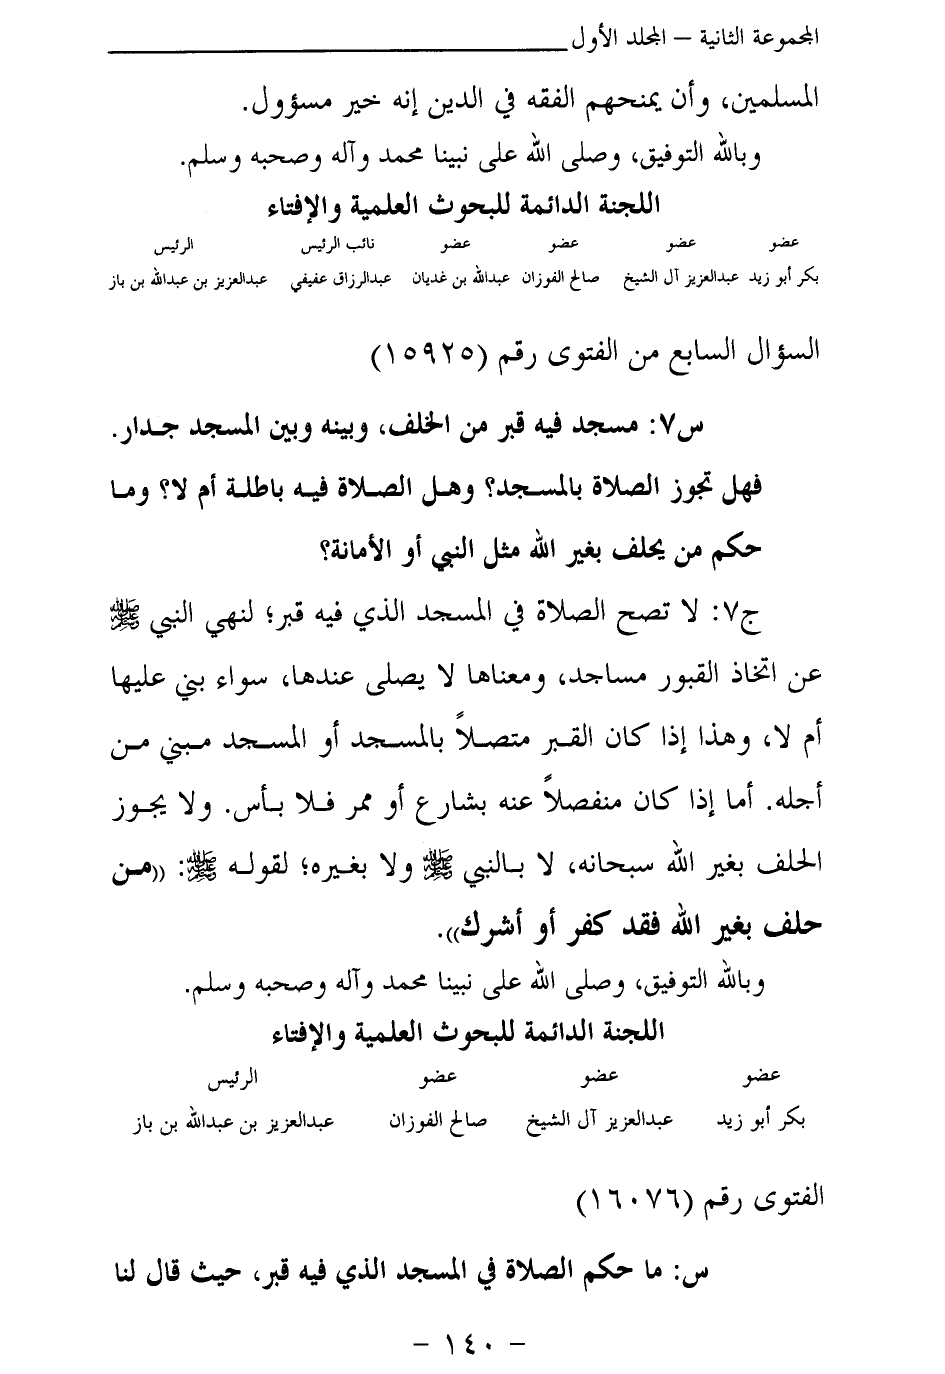 المجموعة الثانية – المجلد الأول
المسلمين، وأن يمنحهم الفقه في الدين إنه خير مسؤول.
وبالله التوفيق، وصلى الله على نبينا محمد وآله وصحبه وسلم.
اللجنة الدائمة للبحوث العلمية والإفتاء
عضو عضو عضو عضو نائب الرئيس الرئيس
بكر أبو زيد عبدالعزيز آل الشيخ صالح الفوزان عبدالله بن غديان عبدالرزاق عفيفي عبدالعزيز بن عبدالله بن باز
السؤال السابع من الفتوى رقم (١٥٩٢٥)
س٧: مسجد فيه قبر من الخلف، وبينه وبين المسجد جدار.
فهل تجوز الصلاة بالمسجد؟ وهل الصلاة فيه باطلة أم لا؟ وما
حكم من يحلف بغير الله مثل النبي أو الأمانة؟
ج٧: لا تصح الصلاة في المسجد الذي فيه قبر؛ لنهي النبي ﷺ
عن اتخاذ القبور مساجد، ومعناها لا يصلى عندها، سواء بني عليها
أم لا، وهذا إذا كان القبر متصلاً بالمسجد أو المسجد مبني من
أجله. أما إذا كان منفصلاً عنه بشارع أو ممر فلا بأس. ولا يجوز
الحلف بغير الله سبحانه، لا بالنبي ﷺ ولا بغيره؛ لقوله ﷺ: ((من
حلف بغير الله فقد كفر أو أشرك)).
وبالله التوفيق، وصلى الله على نبينا محمد وآله وصحبه وسلم.
اللجنة الدائمة للبحوث العلمية والإفتاء
عضو عضو عضو الرئيس
بكر أبو زيد عبدالعزيز آل الشيخ صالح الفوزان عبدالعزيز بن عبدالله بن باز
الفتوى رقم (١٦٠٧٦)
س: ما حكم الصلاة في المسجد الذي فيه قبر، حيث قال لنا
– ١٤٠ –